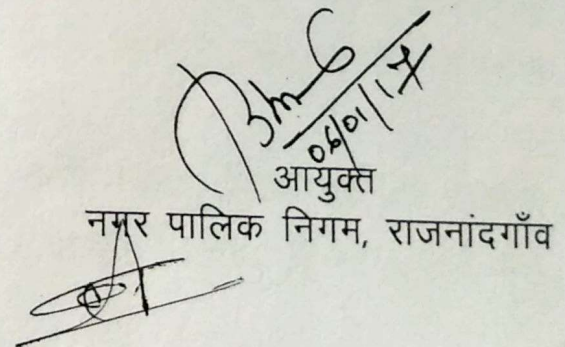 06/01/17
आयुक्त
नगर पालिक निगम, राजनांदगाँव